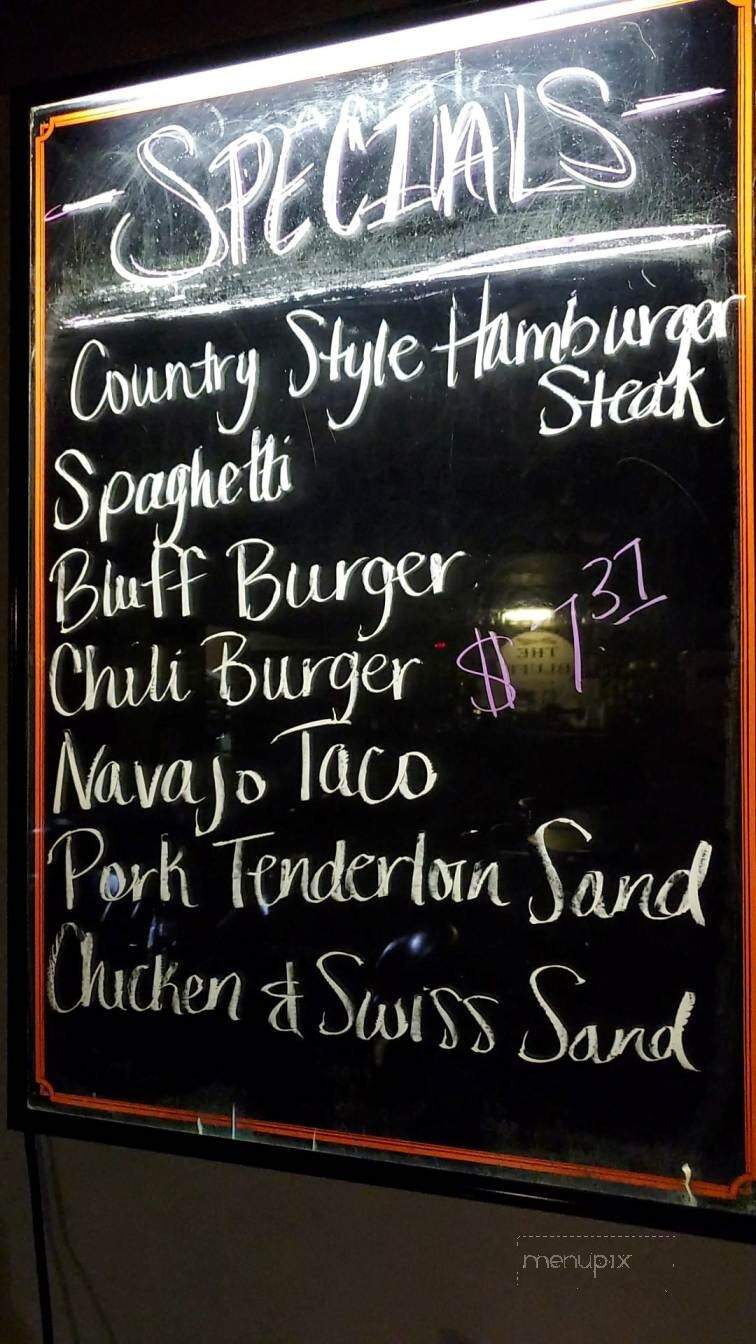 SPECIALS
Country Style Hamburger
Steak
Spaghetti
Bluff Burger
Chili Burger
$7.37
Navajo Taco
Pork Tenderloin Sand
Chicken & Swiss Sand
menupix